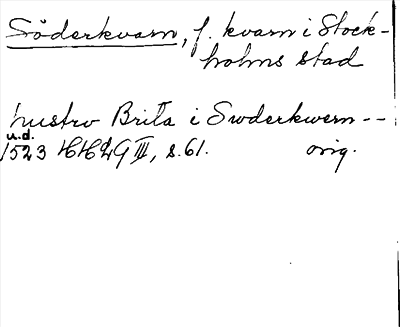 Söderkvarn, f. kvarn i Stock-
holms stad
hustrv Brita i Swderkwern --
u.d.
1523 HH2G III, s. 61. orig.